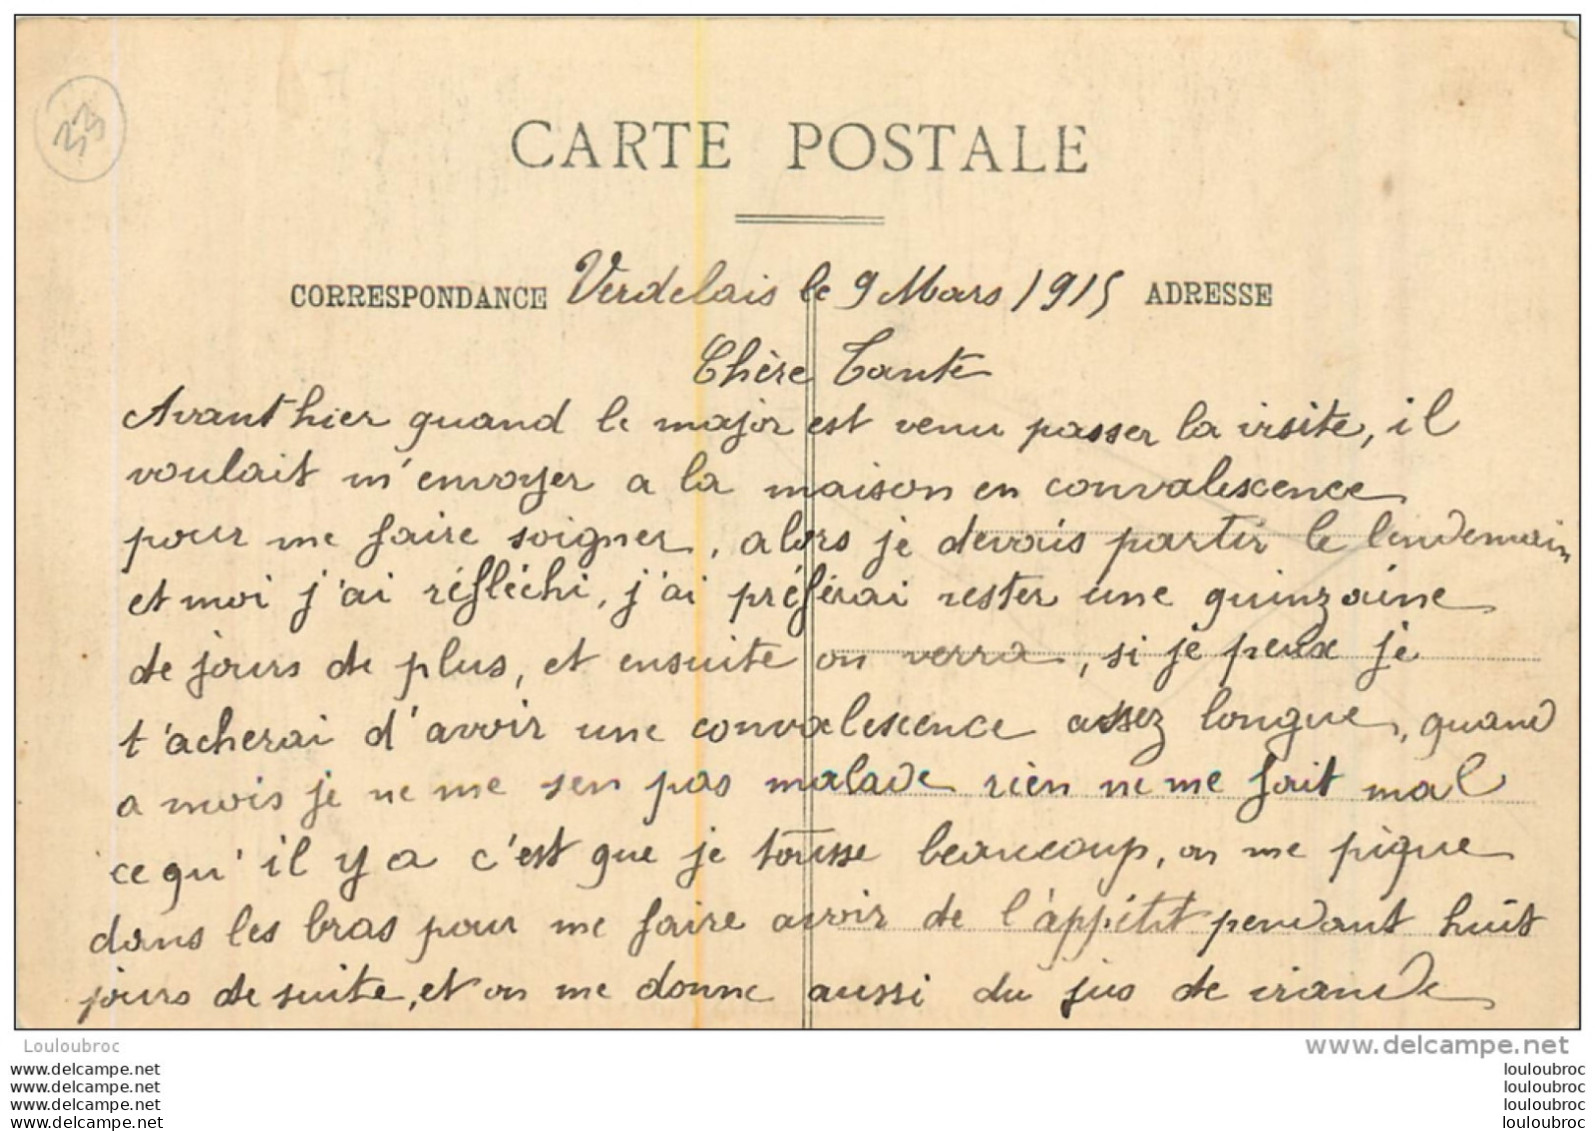 33
CARTE POSTALE
CORRESPONDANCE Verdelais le 9 Mars 1915 ADRESSE
Chère Tante
Avant hier quand le major est venu passer la visite, il
voulait m'envoyer a la maison en convalescence
pour me faire soigner, alors je devais partir le lendemain
et moi j'ai réfléchi, j'ai préférai rester une quinzaine
de jours de plus, et ensuite on verra, si je peux je
t'acherai d'avoir une convalescence assez longue, quand
a mois je ne me sen pas malade rien ne me fait mal
ce qu'il y a c'est que je tousse beaucoup, on me pique
dans les bras pour me faire avoir de l'appétit pendant huit
jours de suite, et on me donne aussi du jus de viande
Louloubroc
www.delcampe.net
www.delcampe.net
www.delcampe.net
www.delcampe.net
www.delcampe.net
louloubroc
louloubroc
louloubroc
louloubroc